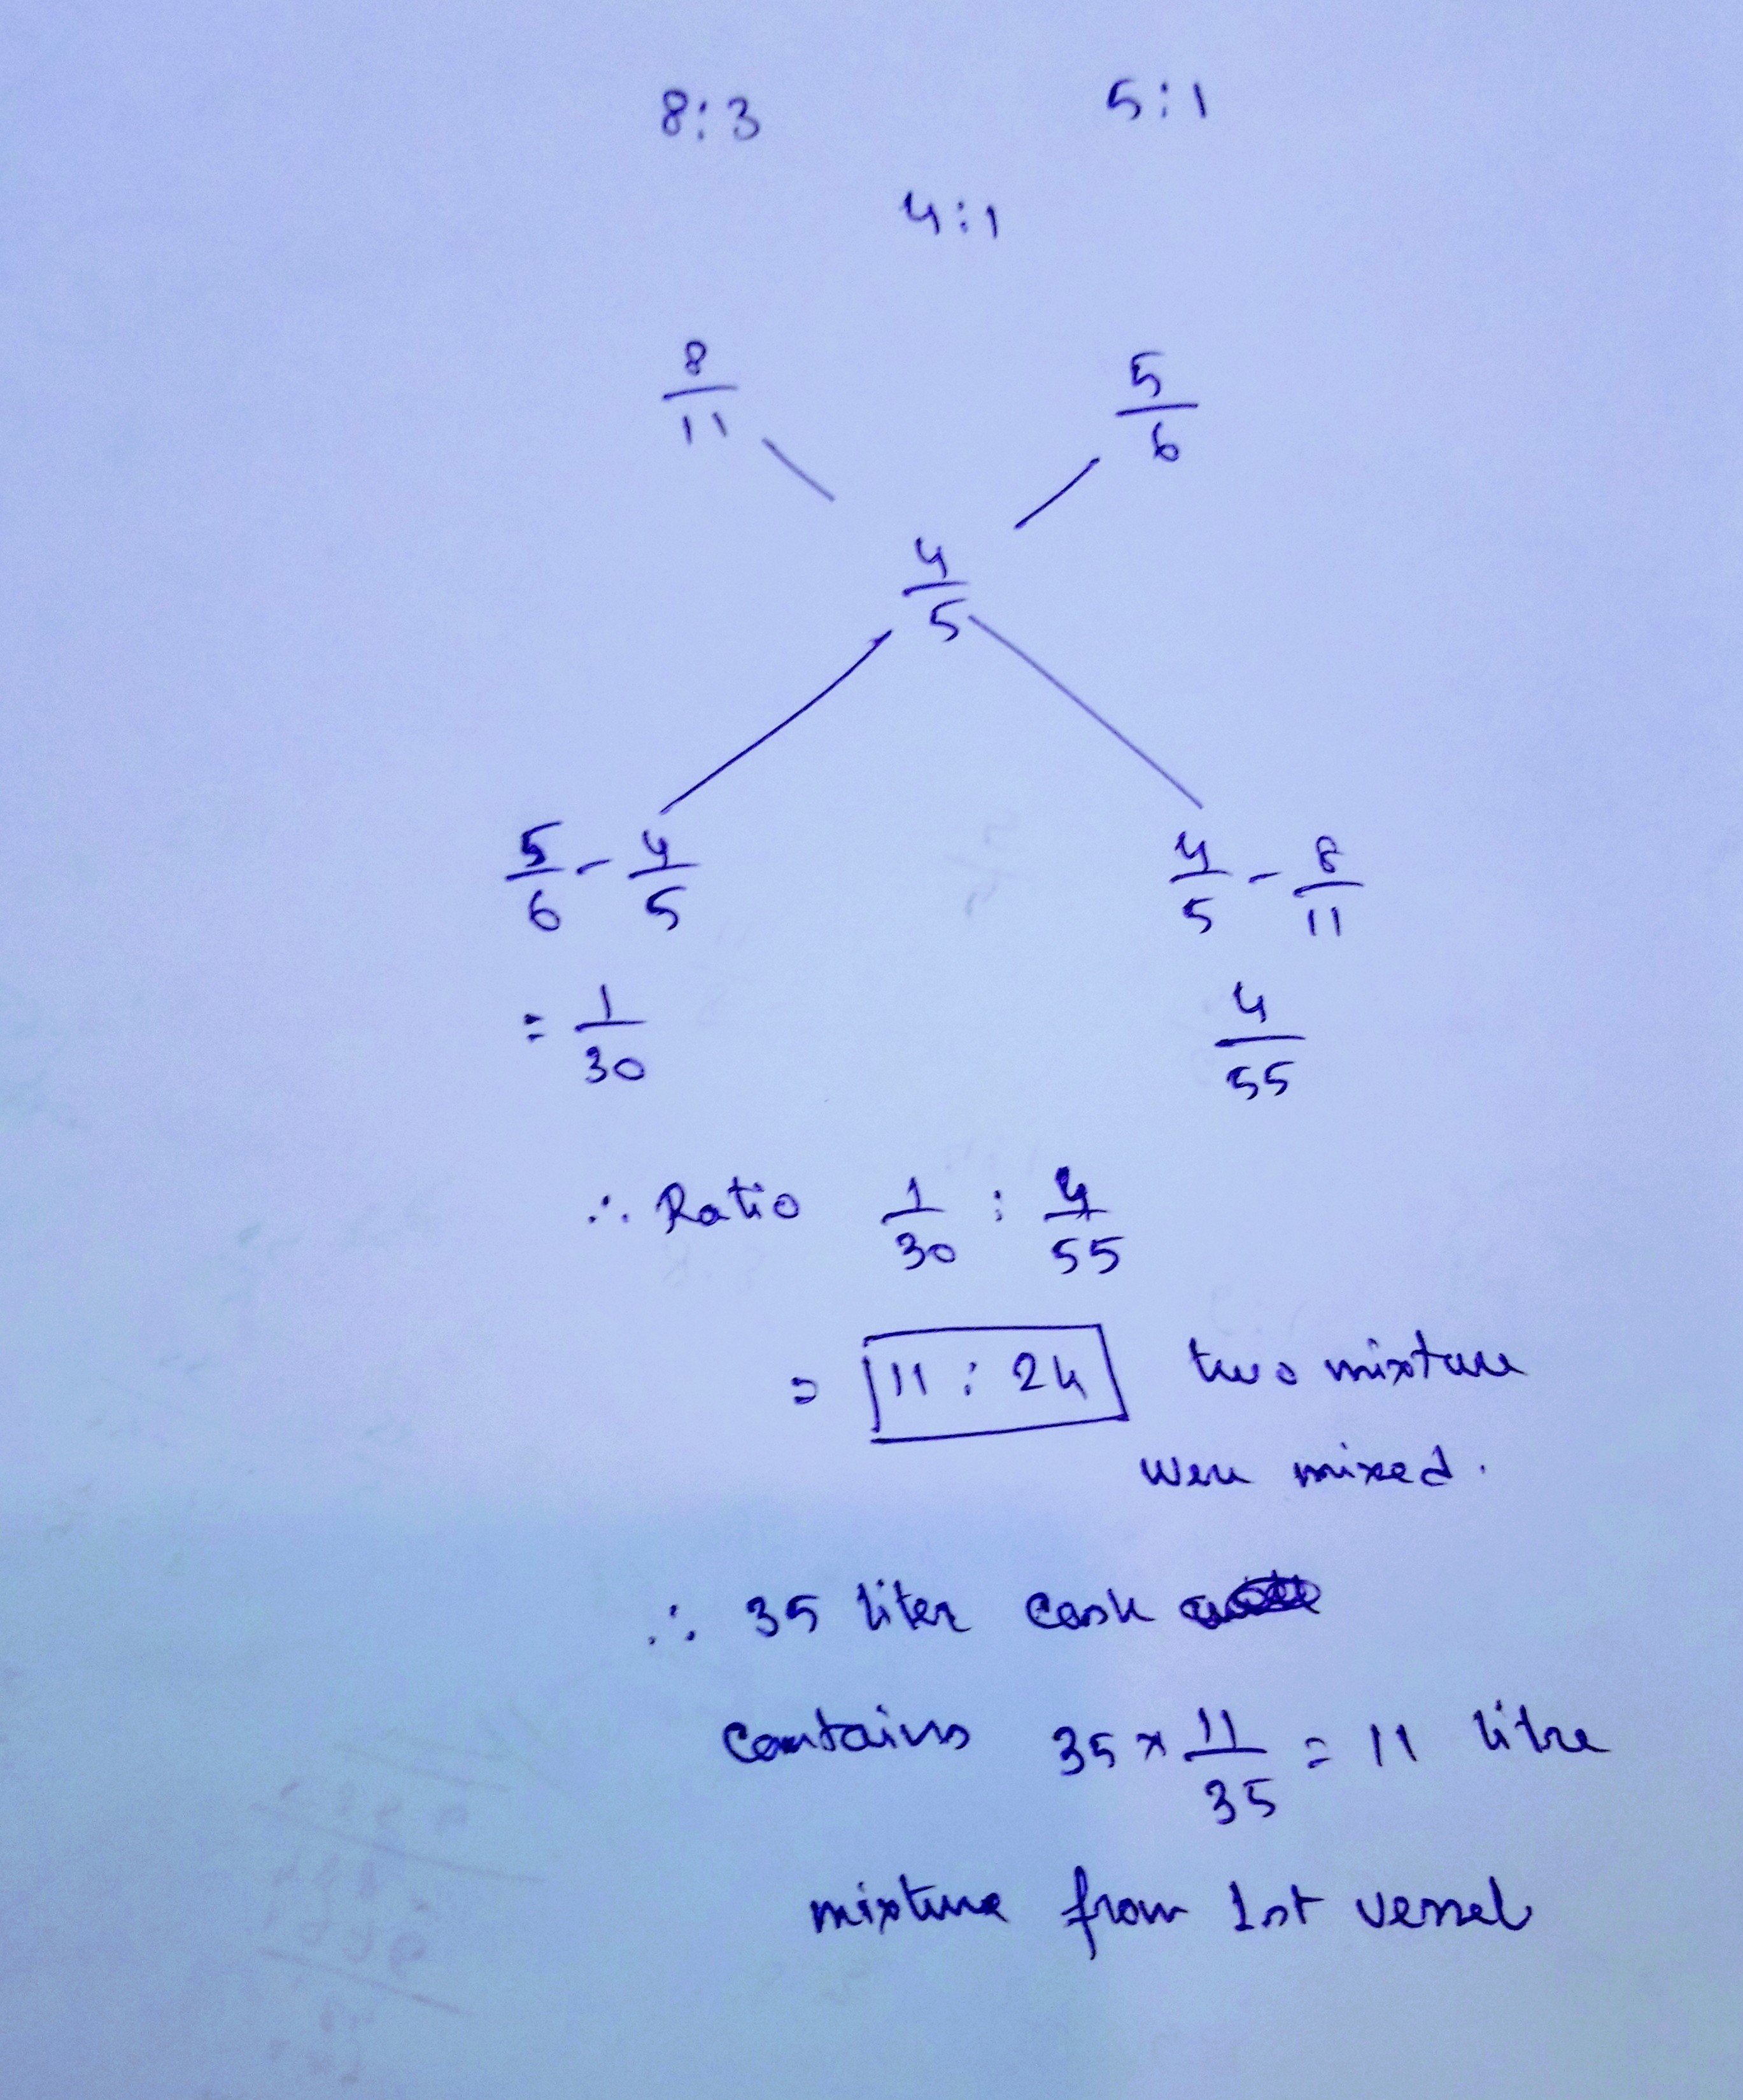 8:3 5:1
4:1
8/11 5/6
4/5
5/6 - 4/5 4/5 - 8/11
= 1/30 4/55
∴ Ratio 1/30 : 4/55
= 11 : 24 two mixture
were mixed.
∴ 35 liter cask
contains 35 × 11/35 = 11 litre
mixture from 1st vessel